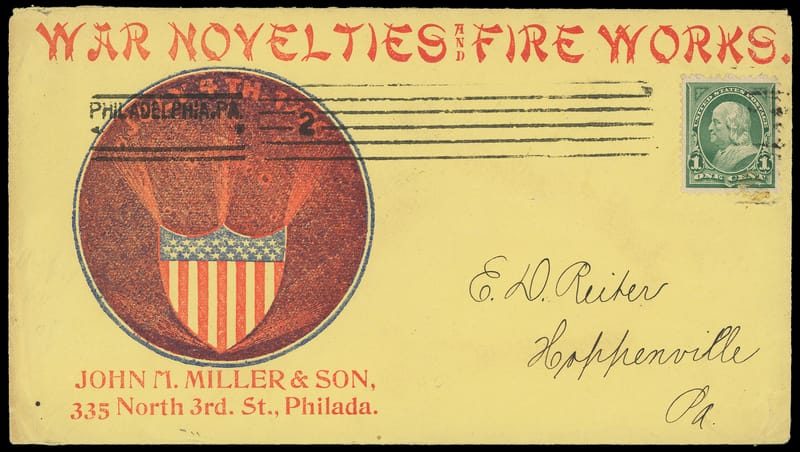 WAR NOVELTIES AND FIRE WORKS.
PHILADELPHIA, PA.
2
UNITED STATES POSTAGE
1 1
ONE CENT
E. D. Reiter
Hoppenville
Pa.
JOHN M. MILLER & SON,
335 North 3rd. St., Philada.